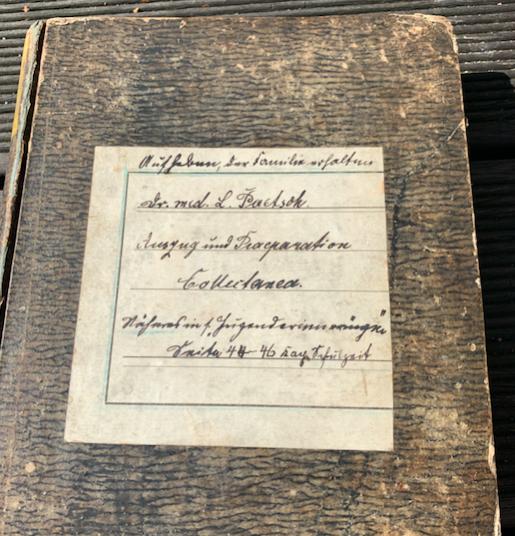 Aufheben, der Familie erhalten
Dr. med. L. Paetsch.
Auszug und Praeparation
Collectanea.
Näheres in s. Jugenderinnerungen"
Seite 44-46 Schulzeit